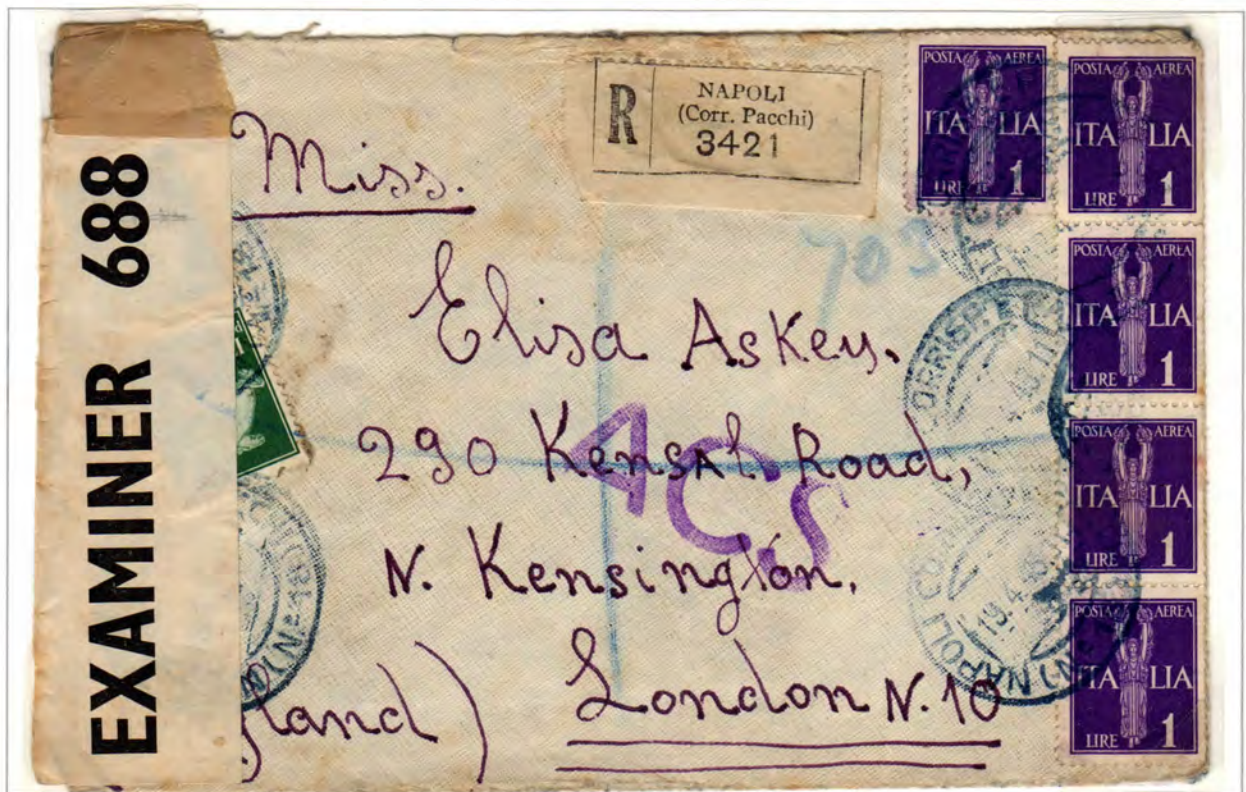 EXAMINER 688
R
NAPOLI
(Corr. Pacchi)
3421
POSTA AEREA
ITALIA
LIRE 1
POSTA AEREA
ITALIA
LIRE 1
POSTA AEREA
ITALIA
LIRE 1
POSTA AEREA
ITALIA
LIRE 1
POSTA AEREA
ITALIA
LIRE 1
703
Miss.
Elisa Askey.
290 Kensal Road,
N. Kensington,
London N.10
gland)
4CS
NAPOLI
19.4